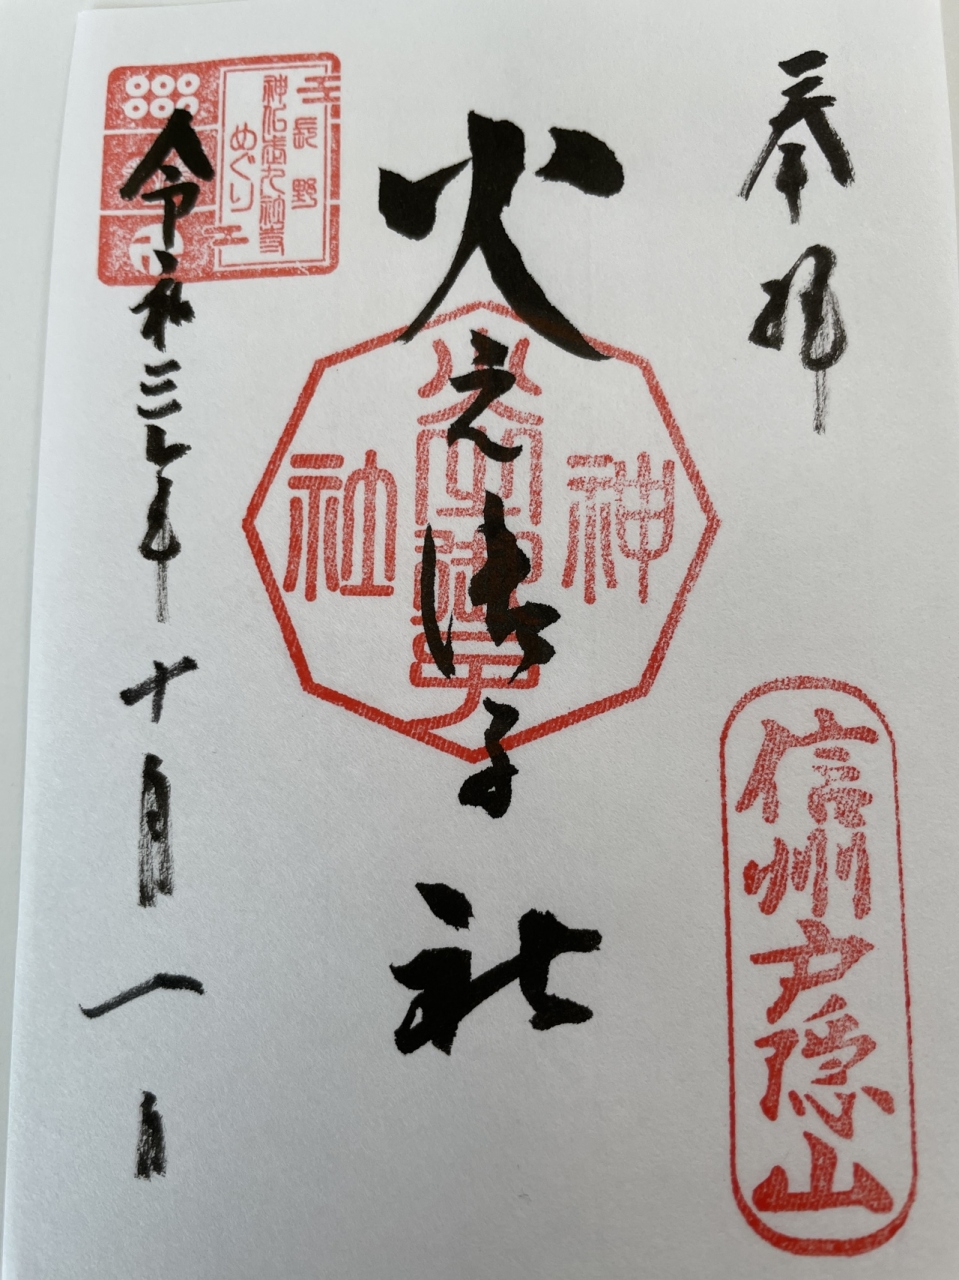 奉拝
信州戸隠山
火之御子社
神
社
令和三年十月一日
長野
めぐり